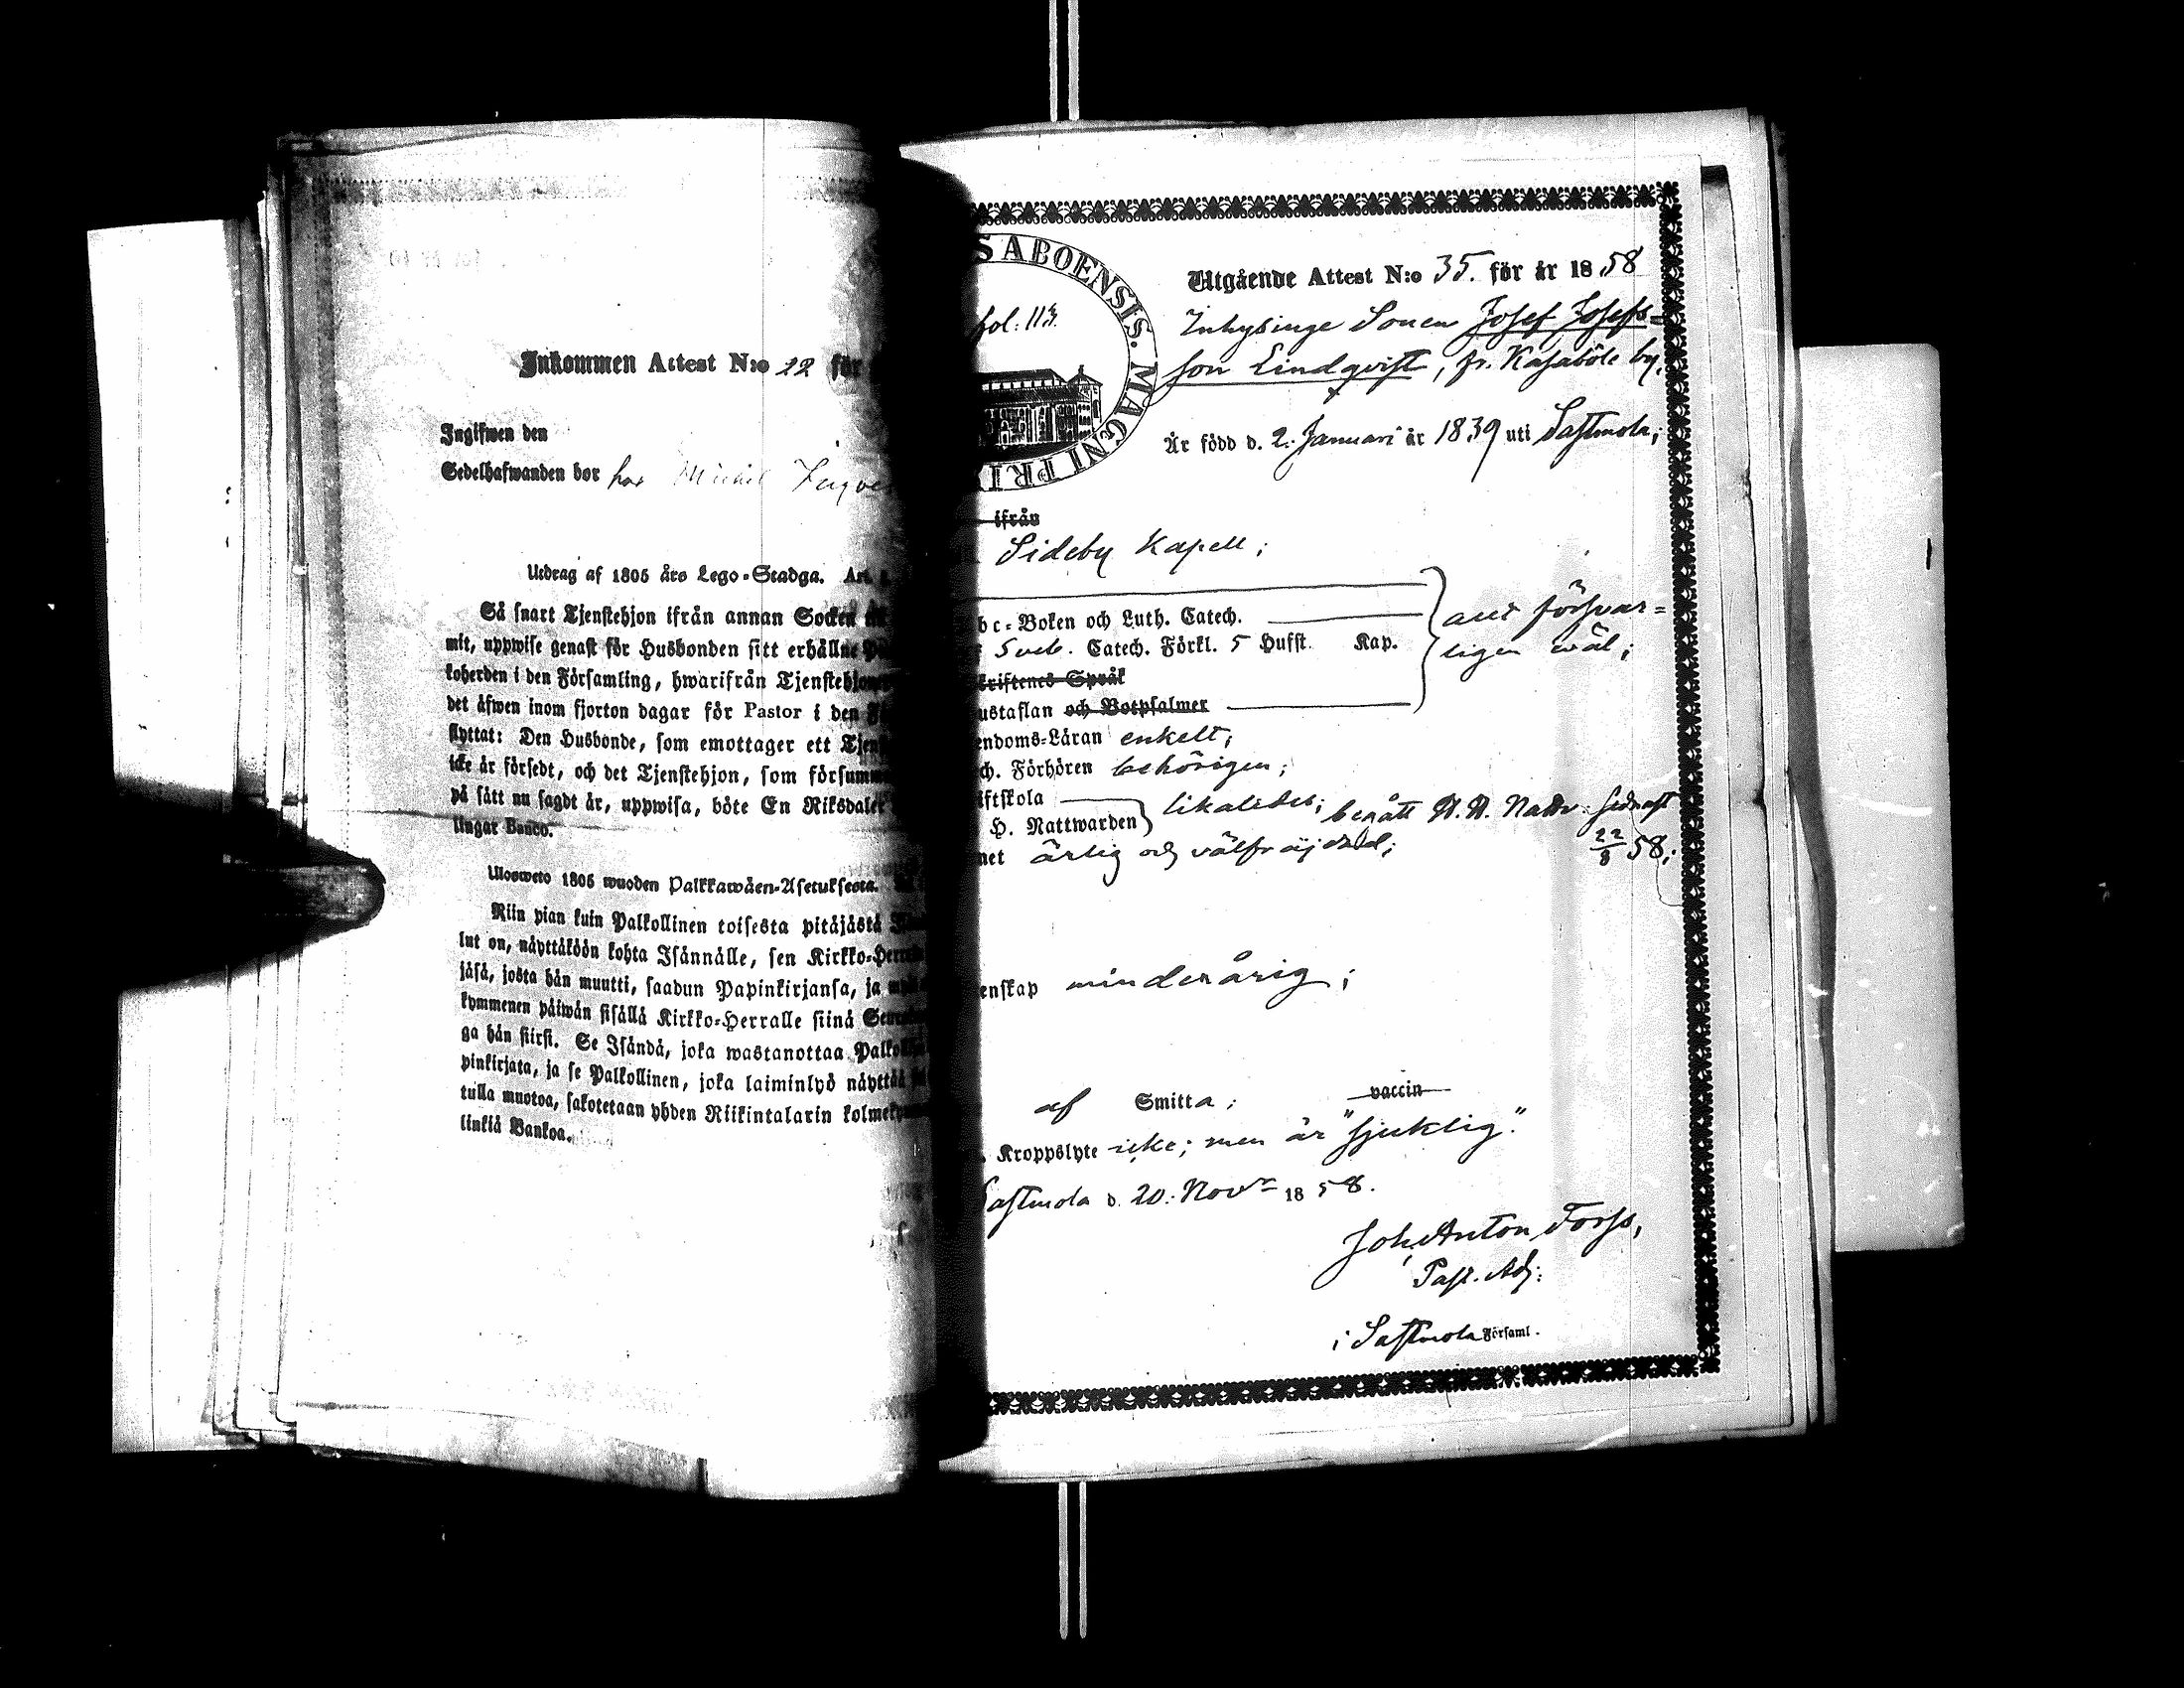 Inkommen Attest N:o 22 för
Ingifwen den
Sedelhafwanden bor hos Michel
Utdrag af 1805 års Lego-Stadga. Art.
Så snart Tjenstehjon ifrån annan Socken
mit, uppwise genast för Husbonden sitt erhållne
koherden i den Församling, hwarifrån
det äfwen inom fjorton dagar för Pastor i den
flyttat: Den Husbonde, som emottager ett
icke är försedt, och det Tjenstehjon, som
på sätt nu sagdt är, uppwisa, böte En Riksdaler
lingar Banco.
Ulosweto 1805 wuoden Palkkawäen-Asetuksesta.
Niin pian kuin Palkollinen toisesta pitäjästä
lut on, näyttäköön kohta Isännälle, sen
jäsä, josta hän muutti, saadun Papinkirjansa, ja
kymmenen päiwän sisällä Kirkko-Herralle siinä
ga hän siirsi. Se Isändä, joka wastanottaa
pinkirjata, ja se Palkollinen, joka laiminlyö näyttää
tulla muotoa, sakotetaan yhden Riikintalarin
linkiä Bankoa.
S ABOENSIS. MAGNI PRI
fol: 113.
Utgående Attest N:o 35. för år 1858
Inhysinge Sonen Josef Josefs=
son Lindqvist, fr. Kasaböle by,
Är född d. 2. Januari år 1839 uti Sastmola;
ifrån
Sideby Kapell;
bc-Boken och Luth. Catech.
Sveb. Catech. Förkl. 5 Hufst. Kap.
kriftenes Språk
ustaflan och Botpsalmer
allt försvar=
ligen wäl;
endoms-Läran enkelt;
ch. Förhören behörigen;
iftskola
H. Nattwarden likaledes; begått H. H. Nattv. sednast
22/8 58;
net ärlig och välfräjdad;
enskap minderårig;
af Smitta; vaccin
Kroppslyte icke; men är "sjuklig."
Sastmola d. 20. Nov:r 1858.
Joh. Anton Forss,
Past. Adj:
i Sastmola Församl.